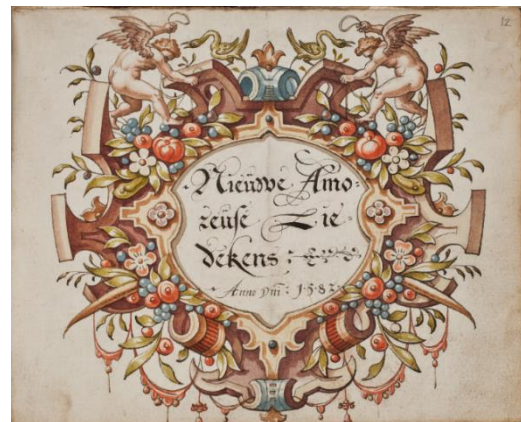 12
Nieuwe Amo=
reuse Lie
dekens :
Anno Dni :